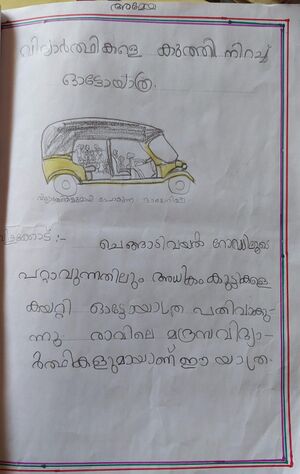 അമേയ
വിദ്യാർത്ഥികളെ കുത്തി നിറച്ച്
ഓട്ടോയാത്ര.
വിദ്യാർത്ഥികളുമായി പോകുന്ന
:- ചെങ്ങാടിവയൽ റോഡിലൂടെ
പറ്റാവുന്നതിലും അധികം കുട്ടികളെ
കയറ്റി ഓട്ടോയാത്ര പതിവാകു-
ന്നു. രാവിലെ മദ്രസവിദ്യാ-
ർത്ഥികളുമായാണ് ഈ യാത്ര.